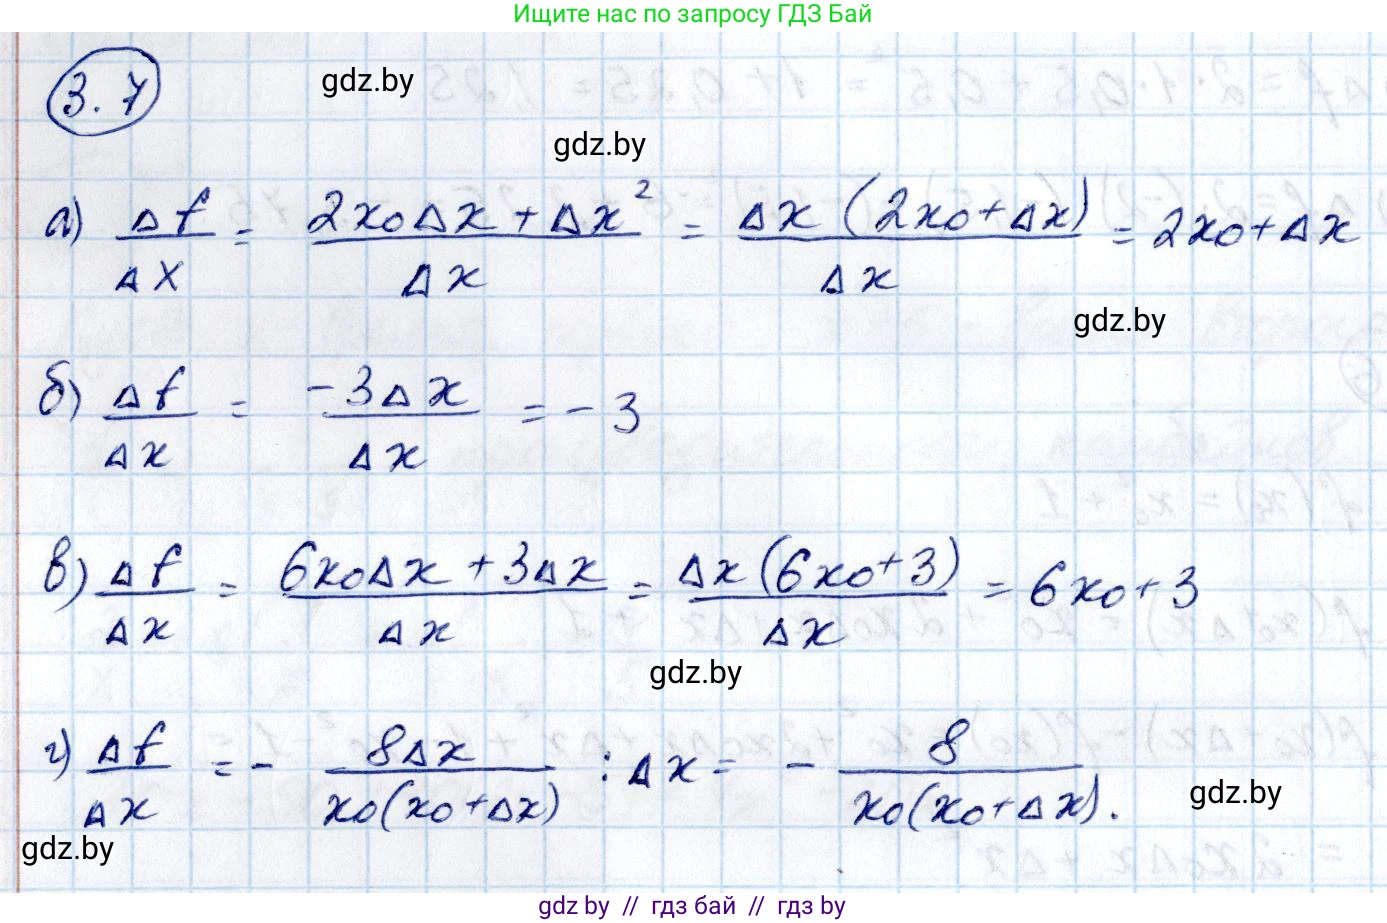 Ищите нас по запросу ГДЗ Бай
3.7
gdz.by
gdz.by
а) Δf/Δx = (2x₀Δx + Δx²)/Δx = Δx(2x₀ + Δx)/Δx = 2x₀ + Δx
gdz.by
б) Δf/Δx = -3Δx/Δx = -3
в) Δf/Δx = (6x₀Δx + 3Δx)/Δx = Δx(6x₀ + 3)/Δx = 6x₀ + 3
gdz.by
г) Δf/Δx = - 8Δx/(x₀(x₀ + Δx)) : Δx = - 8/(x₀(x₀ + Δx)).
gdz.by
gdz.by
gdz by // гдз бай // гдз by